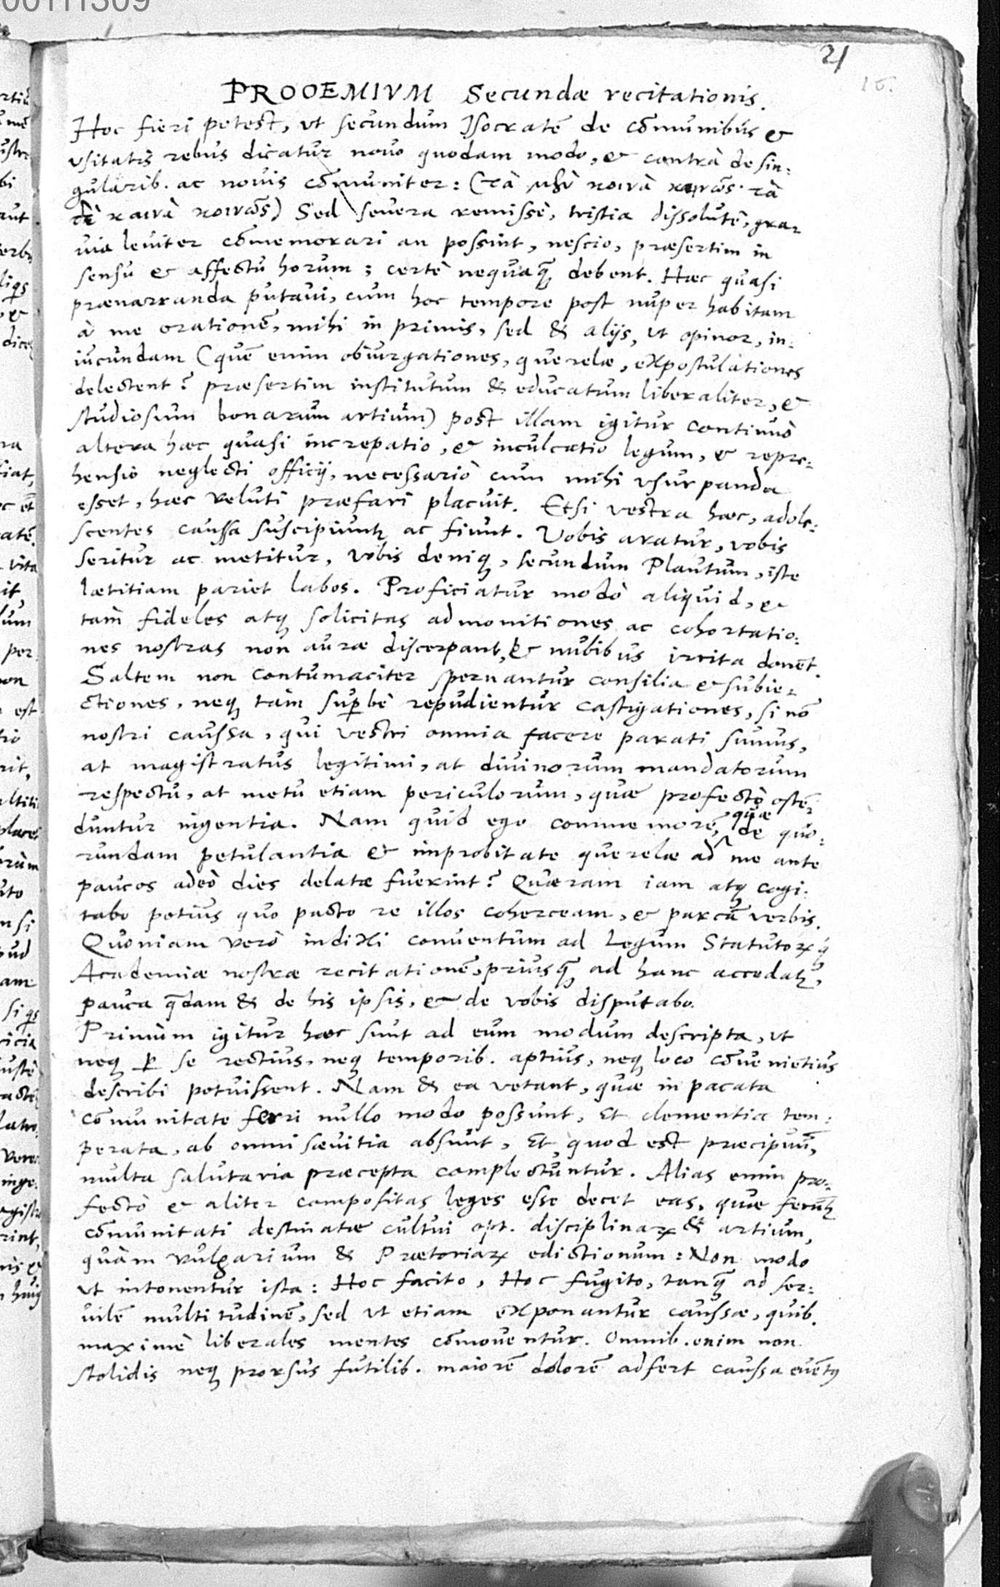 00111309
21
16.
PROOEMIVM Secundæ recitationis.
Hoc fieri potest, vt secundum Isocratē de cōmunibus &
vsitatis rebus dicatur nouo quodam modo, & contrà de sin-
gularib. ac nouis cōmuniter: (τὰ μὲν κοινὰ καινῶς τὰ
δὲ καινὰ κοινῶς) Sed seuera remissè, tristia dissolutè, gra-
uia leuiter cōmemorari an possint, nescio, præsertim in
sensu & affectu horum; certè nequaq̄ debent. Hæc quasi
prænarranda putaui, cum hoc tempore post nuper habitam
à me orationē, mihi in primis, sed & alijs, vt opinor, in-
iucundam (quē enim obiurgationes, querelæ, expostulationes
delectent? præsertim institutum & educatum liberaliter, &
studiosum bonarum artium) post illam igitur continuò
altera hæc quasi increpatio, & inculcatio legum, & repre-
hensio neglecti officij, necessariò cum mihi vsurpanda
esset, hæc veluti præfari placuit. Etsi vestra hæc, adole-
scentes caussa suscipiunt ac fiunt. Vobis aratur, vobis
seritur ac metitur, vobis deniq, secundum Plautum, iste
lætitiam pariet labos. Proficiatur modò aliquid, &
tàm fideles atq solicitas admonitiones ac cohortatio-
nes nostras non auræ discerpant, & nubibus irrita donēt.
Saltem non contumaciter spernantur consilia & subie-
ctiones, neq tàm supbè repudientur castigationes, si nō
nostri caussa, qui vestri omnia facere parati sumus,
at magistratus legitimi, at diuinorum mandatorum
respectu, at metu etiam periculorum, quæ profectò ostē-
duntur ingentia. Nam quid ego commemorē, quæ de quo-
rundam petulantia & improbitate querelæ ad me ante
paucos adeò dies delatæ fuerint? Quæram iam atq cogi-
tabo potius quo pacto re illos coherceam, & parcā verbis.
Quoniam verò indixi conuentum ad Legum Statutorūq
Academiæ nostræ recitationē, priusq̄ ad hanc accedat,
pauca q̄dam & de his ipsis, & de vobis disputabo.
Primùm igitur hæc sunt ad eum modum descripta, vt
neq p se rectius, neq temporib. aptius, neq loco cōuenietius
describi potuissent. Nam & ea vetant, quæ in pacata
cōmunitate ferri nullo modo possunt, Et clementia tem-
perata, ab omni sæuitia absunt, Et quod est præcipuū,
multa salutaria præcepta complectuntur. Alias enim pro-
fectò & aliter compositas leges esse decet eas, quæ ferunt
cōmunitati destinatæ cultui opt. disciplinarū & artium,
quàm vulgarium & Prætoriarū edictionum: Non modo
vt intonentur ista: Hoc facito, Hoc fugito, tanq̄ ad ser-
uilē multitudinē, sed vt etiam exponantur caussæ, quib.
maximè liberales mentes cōmouentur. Omnib. enim non
stolidis neq prorsus futilib. maiorē dolorē adfert caussa euētꝰ